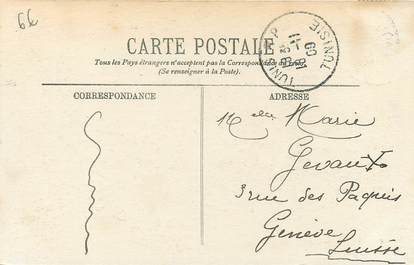 66
CARTE POSTALE
Tous les Pays étrangers n'acceptent pas la Correspondance au dos.
(Se renseigner à la Poste).
TUNIS R.P
TUNISIE
CORRESPONDANCE
ADRESSE
Melle Marie
3 rue des Paquis
Genève
Suisse